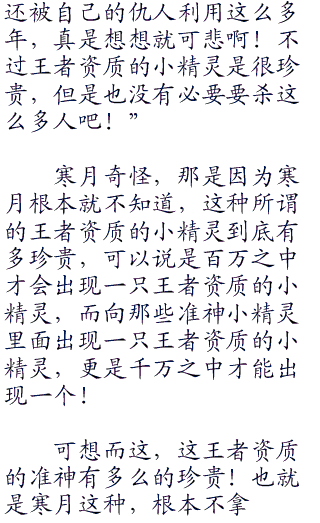 还被自己的仇人利用这么多
年，真是想想就可悲啊！不
过王者资质的小精灵是很珍
贵，但是也没有必要要杀这
么多人吧！”
寒月奇怪，那是因为寒
月根本就不知道，这种所谓
的王者资质的小精灵到底有
多珍贵，可以说是百万之中
才会出现一只王者资质的小
精灵，而向那些准神小精灵
里面出现一只王者资质的小
精灵，更是千万之中才能出
现一个！
可想而这，这王者资质
的准神有多么的珍贵！也就
是寒月这种，根本不拿